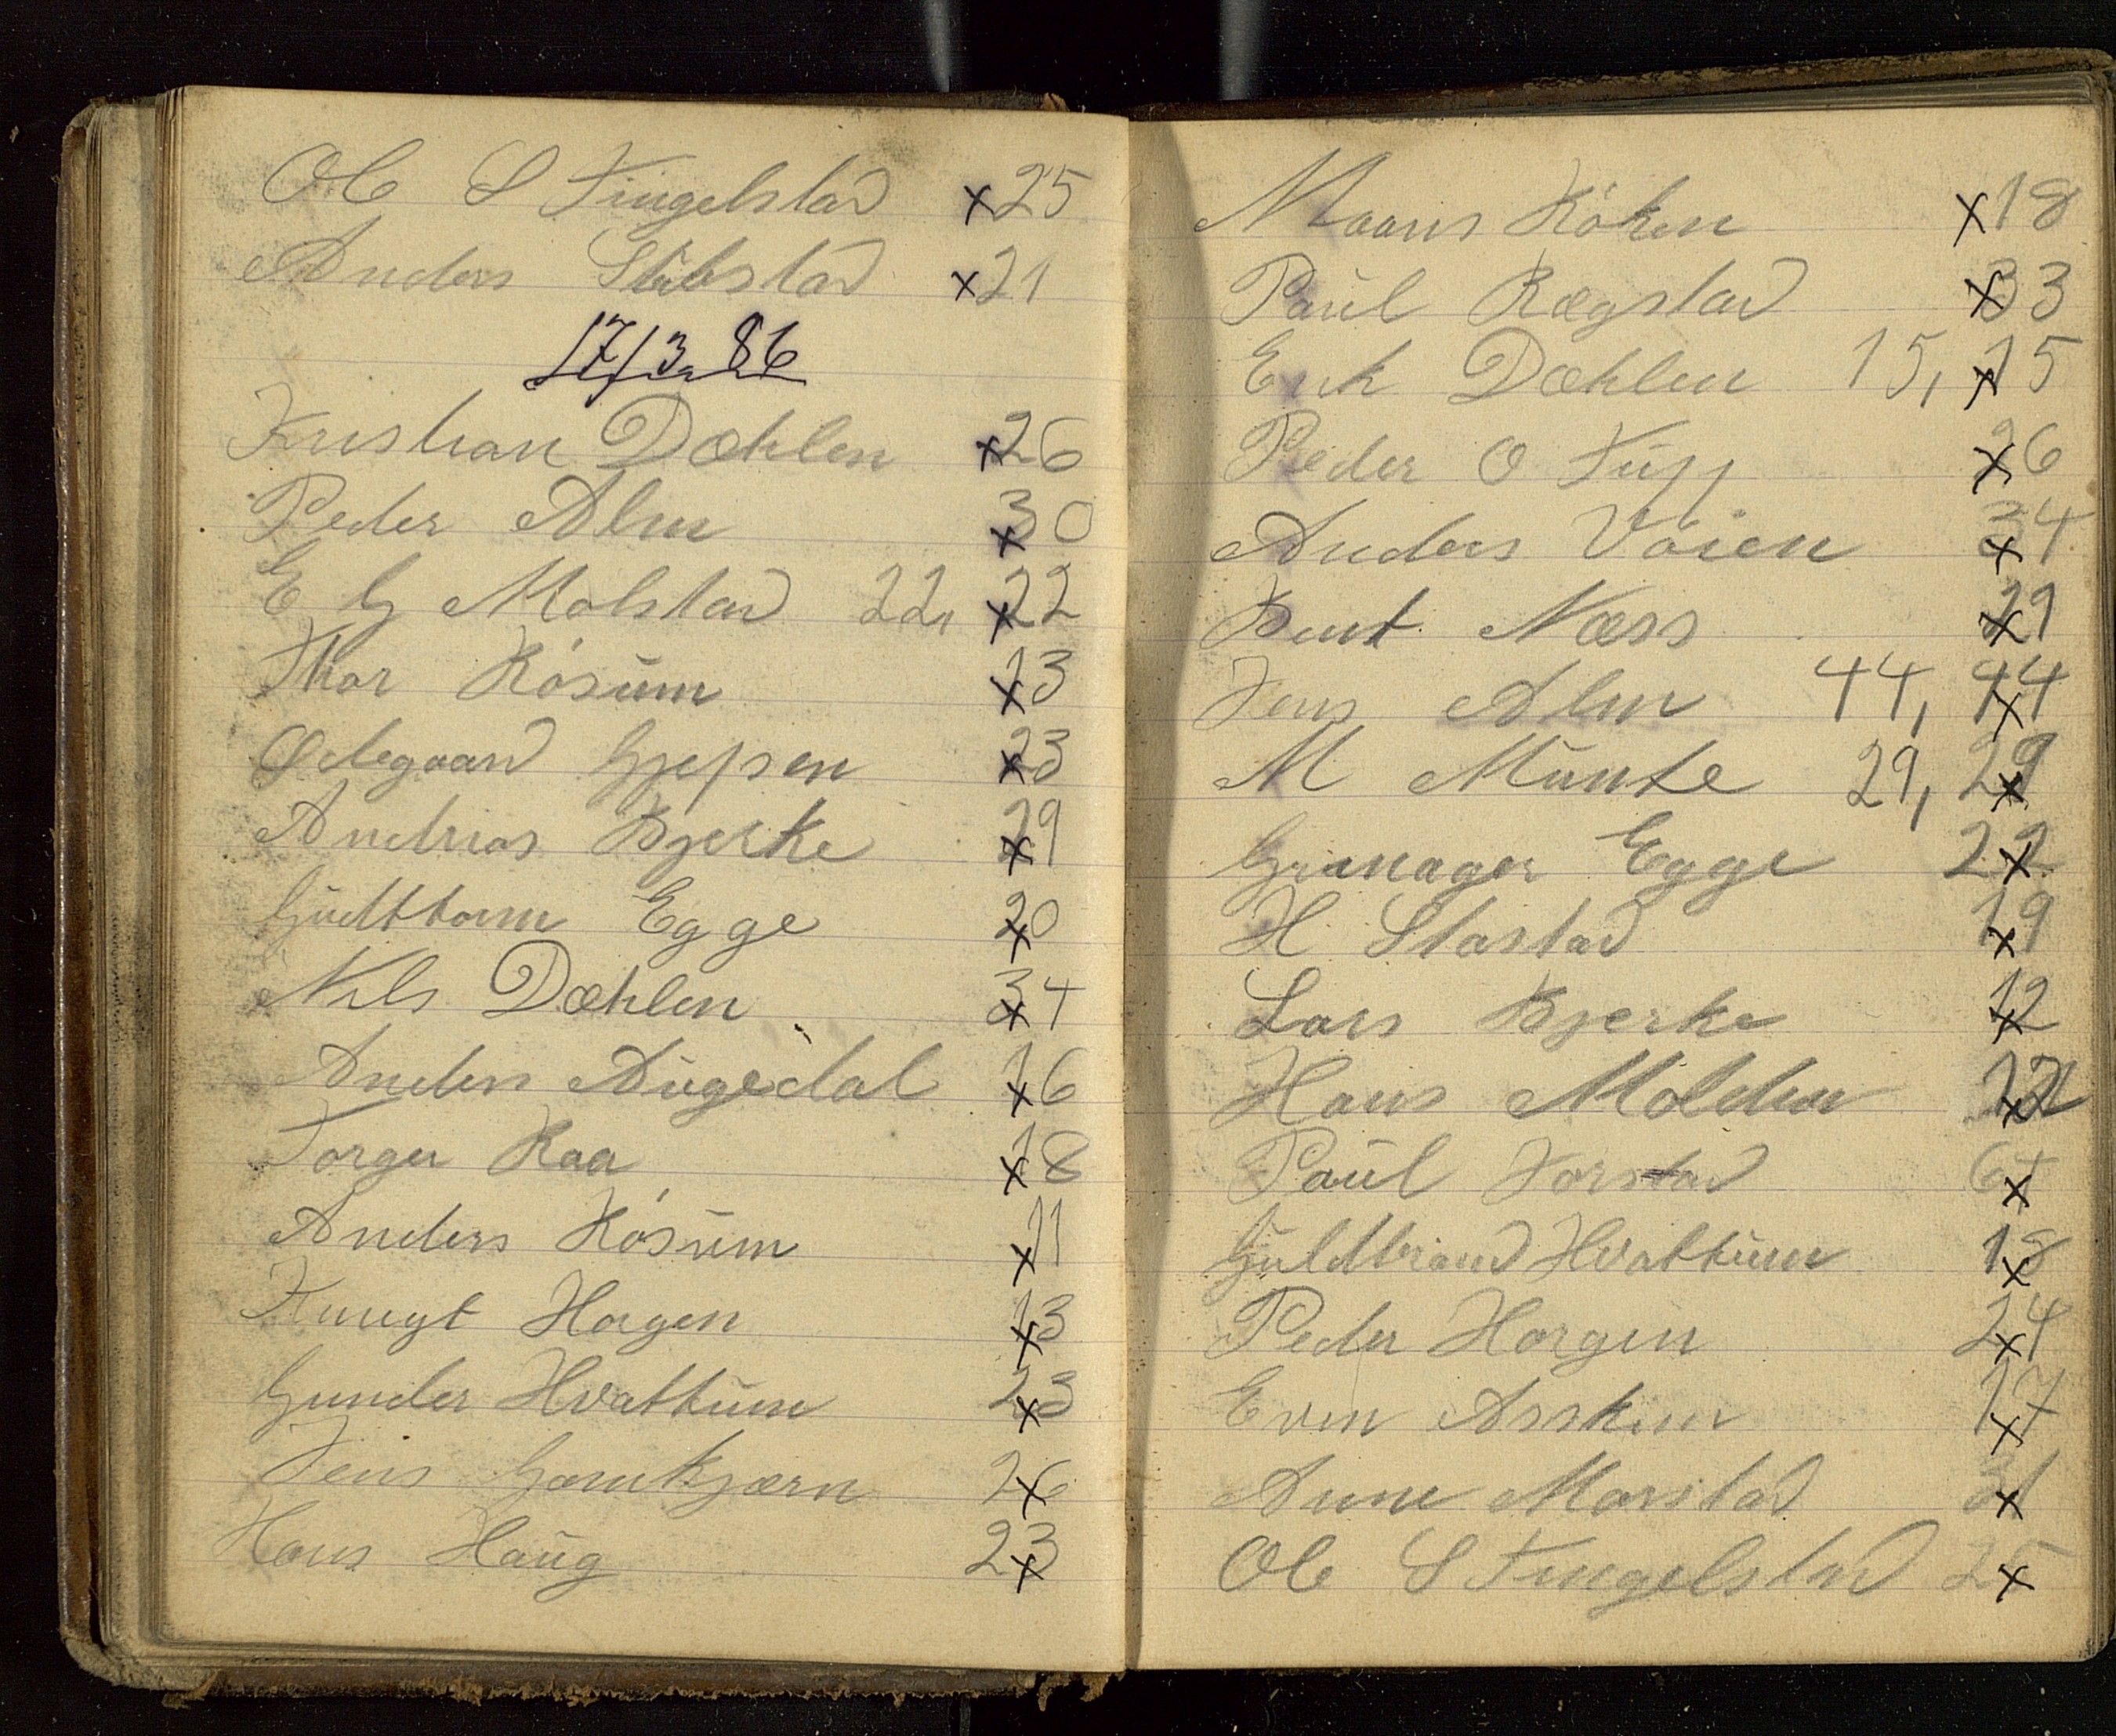 Ole S Fingelstad x25
Anders Stibstad x21
17/3 86
Kristian Dæhlen x26
Peder Alm x30
E G Molstad 22, x22
Thor Rösum x13
Ødegaard Gjefsen x23
Andrias Bjerke x29
Gudttorm Egge x20
Nils Dæhlen x34
Anders Augedal x16
Torger Raa x18
Anders Rösum x11
Knugt Horgen x13
Gunder Hvattum x23
Jens Gamkjærn x26
Hans Haug x23
Maans Röken x18
Paul Rægstad x33
Erik Dæhlen 15, x15
Peder O Tuff x26
Anders Voien x34
Bent Næss x29
Jens Alm 44, x44
M Munte 29, x29
Granager Egge x22
H Stastad x19
Lars Bjerke x12
Hans Molden
Paul Horstad
Guldbrand Hvattum x18
Peder Horgen x24
Even Assken x17
Anne Morstad
Ole S Fingelstad x25